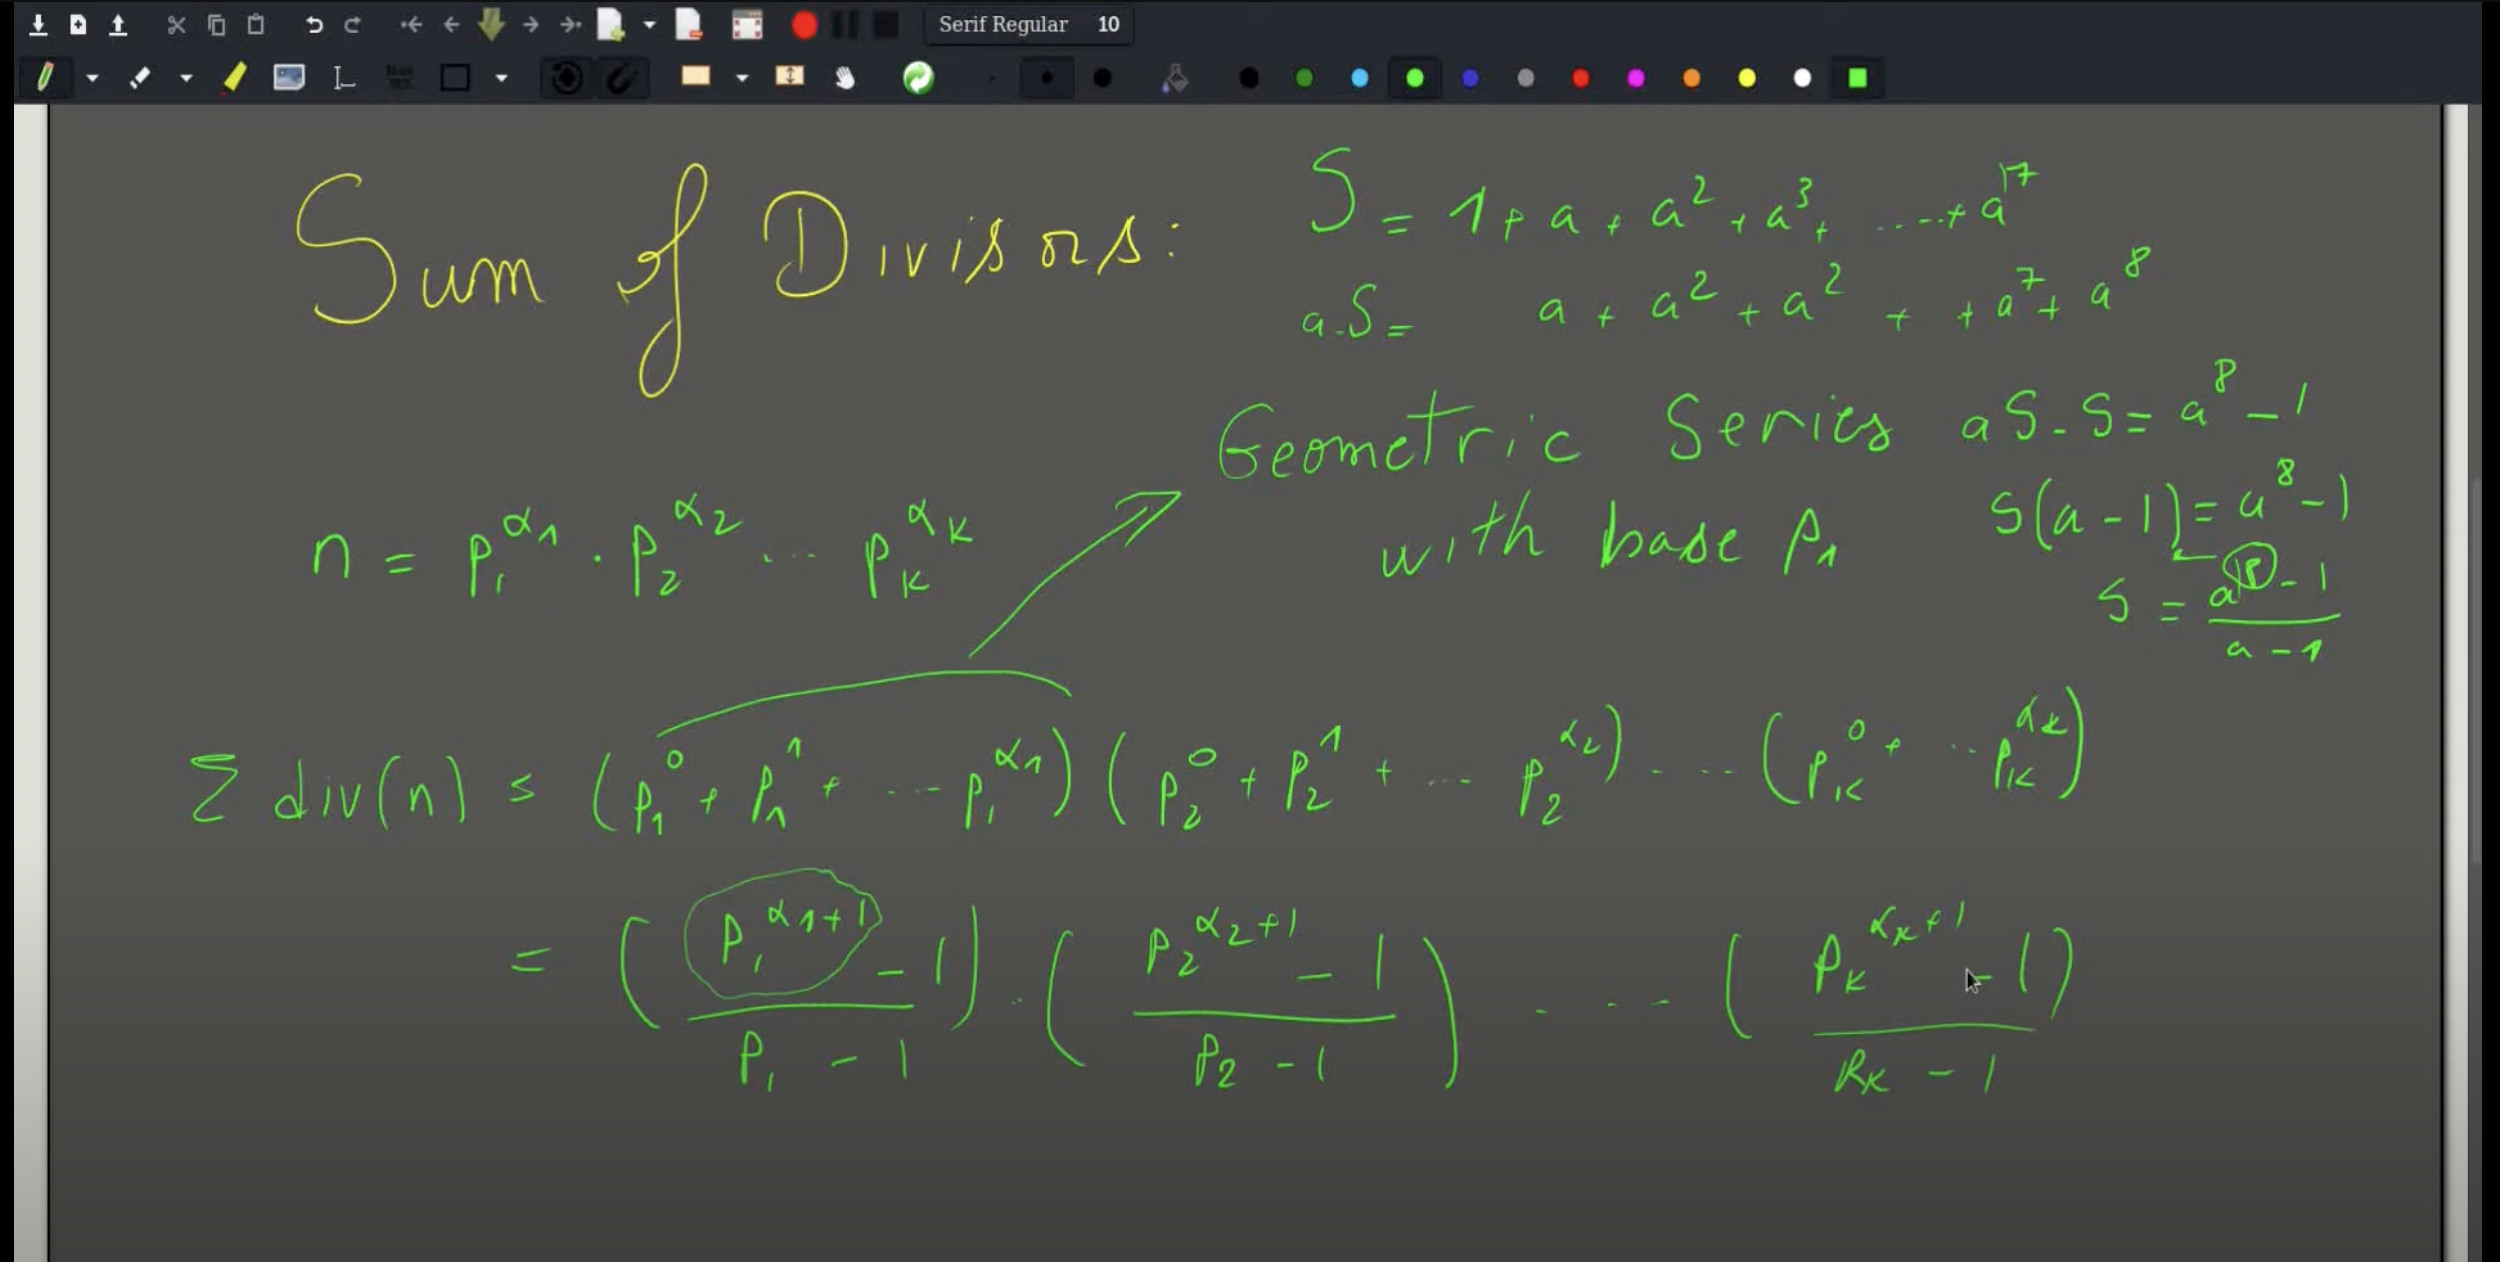 Serif Regular 10
Sum of Divisors:
S = 1 + a + a² + a³ + ....+ a¹⁷
a.S = a + a² + a² + + a⁷ + a⁸
Geometric Series
with base p₁
aS - S = a⁸ - 1
S(a - 1) = a⁸ - 1
S = (a¹⁸ - 1) / (a - 1)
n = p₁^α₁ · p₂^α₂ ... p_k^α_k
Σ div(n) = (p₁⁰ + p₁¹ + ... p₁^α₁) (p₂⁰ + p₂¹ + ... p₂^α₂) ... (p_k⁰ + .. p_k^α_k)
= ((p₁^(α₁+1) - 1) / (p₁ - 1)) · ((p₂^(α₂+1) - 1) / (p₂ - 1)) ... ((p_k^(α_k+1) - 1) / (p_k - 1))